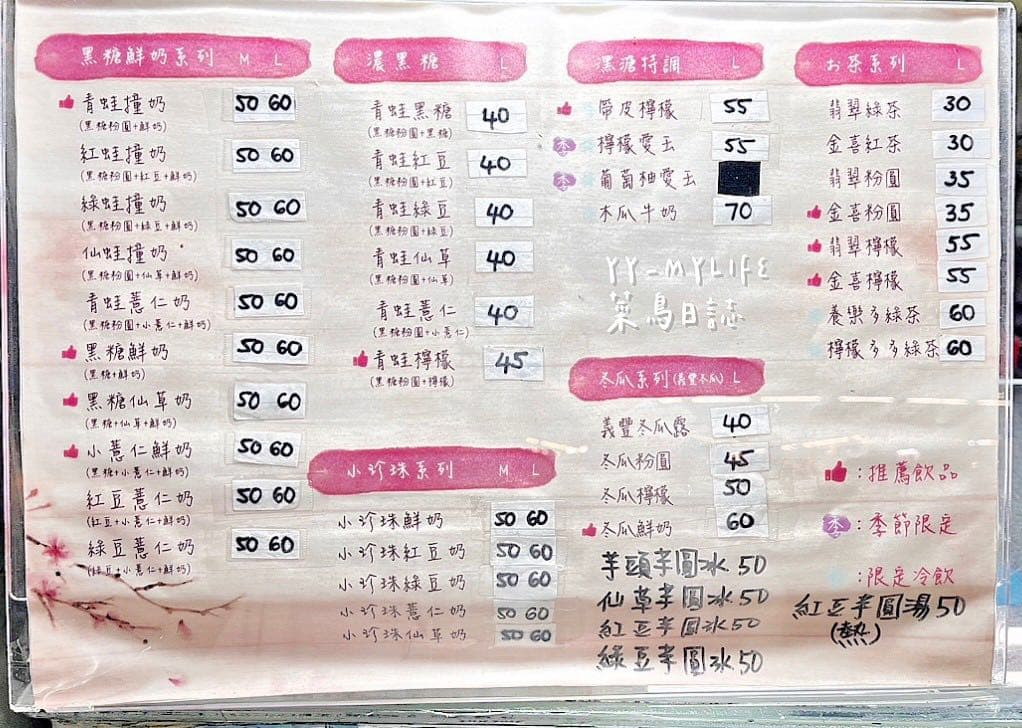 黑糖鮮奶系列 M L
青蛙撞奶 50 60
(黑糖粉圓+鮮奶)
紅蛙撞奶 50 60
(黑糖粉圓+紅豆+鮮奶)
綠蛙撞奶 50 60
(黑糖粉圓+綠豆+鮮奶)
仙蛙撞奶 50 60
(黑糖粉圓+仙草+鮮奶)
青蛙薏仁奶 50 60
(黑糖粉圓+小薏仁+鮮奶)
黑糖鮮奶 50 60
(黑糖+鮮奶)
黑糖仙草奶 50 60
(黑糖+仙草+鮮奶)
小薏仁鮮奶 50 60
(黑糖+小薏仁+鮮奶)
紅豆薏仁奶 50 60
(紅豆+小薏仁+鮮奶)
綠豆薏仁奶 50 60
(綠豆+小薏仁+鮮奶)
濃黑糖 L
青蛙黑糖 40
(黑糖粉圓+黑糖)
青蛙紅豆 40
(黑糖粉圓+紅豆)
青蛙綠豆 40
(黑糖粉圓+綠豆)
青蛙仙草 40
(黑糖粉圓+仙草)
青蛙薏仁 40
(黑糖粉圓+小薏仁)
青蛙檸檬 45
(黑糖粉圓+檸檬)
小珍珠系列 M L
小珍珠鮮奶 50 60
小珍珠紅豆奶 50 60
小珍珠綠豆奶 50 60
小珍珠薏仁奶 50 60
小珍珠仙草奶 50 60
黑糖特調 L
帶皮檸檬 55
季 檸檬愛玉 55
季 葡萄柚愛玉
木瓜牛奶 70
YY_MYLIFE
菜鳥日誌
冬瓜系列(義豐冬瓜) L
義豐冬瓜露 40
冬瓜粉圓 45
冬瓜檸檬 50
冬瓜鮮奶 60
芋頭芋圓冰 50
仙草芋圓冰 50
紅豆芋圓冰 50
綠豆芋圓冰 50
お茶系列 L
翡翠綠茶 30
金喜紅茶 30
翡翠粉圓 35
金喜粉圓 35
翡翠檸檬 55
金喜檸檬 55
養樂多綠茶 60
檸檬多多綠茶 60
:推薦飲品
季 :季節限定
:限定冷飲
紅豆芋圓湯 50
(熱)